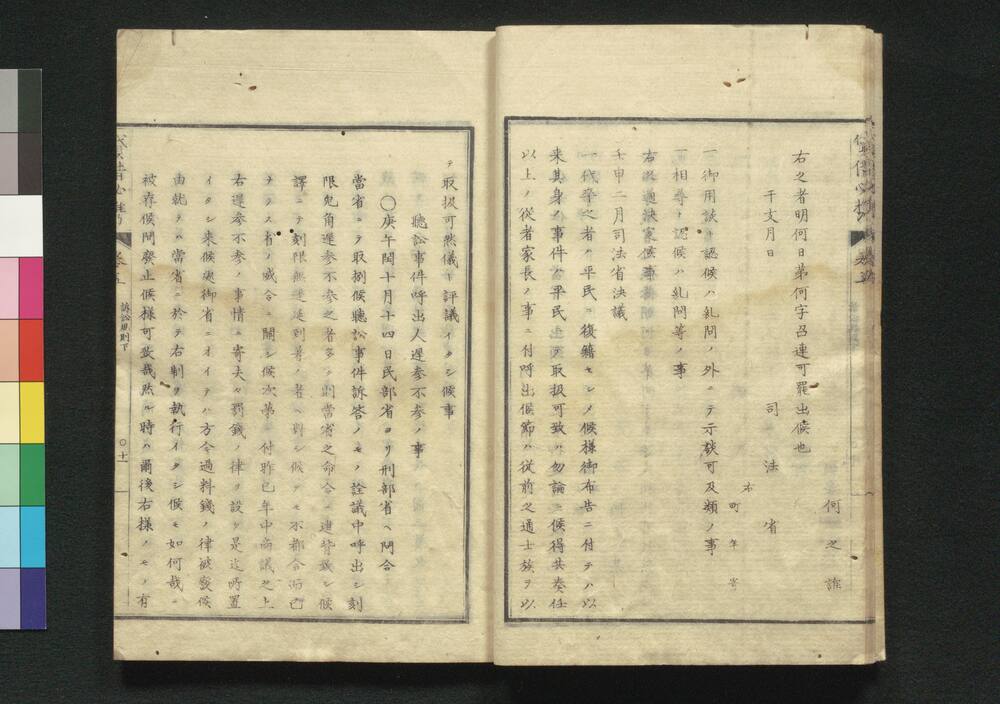 何之誰
右之者明何日第何字呂連可罷出候也
干支月日
司法省
町年寄
一御用談ト認候ハ糺問ノ外ニテ示談可及類ノ事
一相尋ト認候ハ糺問等ノ事
壬申二月司法省決議
一代卒之者ハ平民ニ復籍セシメ候様御布告ニ付テハ以
来其身ノ事件ハ平民ヲ取扱可致ハ勿論ニ候得共奏任
以上ノ從者家長ノ事ニ付呼出候節ハ從前之通士族ヲ以
テ取扱可然儀ト評議イタシ候事
聽訟事件呼出人遲參不參ノ事
〇庚午閏十月十四日民部省ヨリ刑部省ヘ問合
當省ニテ取捌候聽訟事件訴答ノモノ詮議中呼出シ刻
限兎角遲參不參之者多ク則當省之命令ニ違背致シ候
譯ニテ刻限無遲延到着ノ者ヘ對シ候テモ不都合而已
ナラス省ノ威令ニ關シ候次第ニ付昨巳年中商議之上
右遲參不參ノ事情ニ寄夫々罰錢ノ律ヲ設ケ是迄所置
イタシ來候處御省ニオイテハ方今過料錢ノ律被廢候
由就テハ當省ニ於テ右制ヲ執行イタシ候モ如何哉ニ
被存候間廢止候様可致哉然ル時ハ爾後右様ノモノ有
訴訟規則下
〇十一